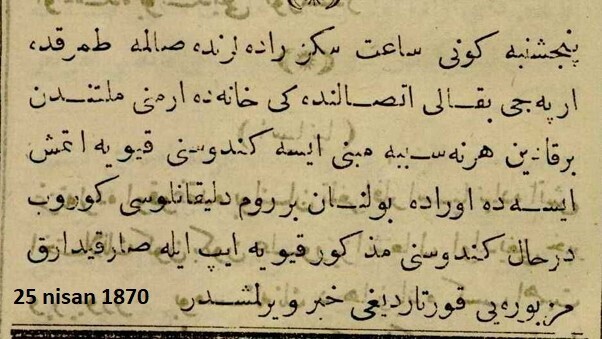 پنجشنبه كونی ساعت سكز راده لرنده صالمه طمرقده
ارپه‌جی بقالی اتصالنده كی خانه ده ارمنی ملتندن
برقادین هرنه سببه مبنی ایسه كندوسنی قیویه اتمش
ایسه ده اوراده بولنان برروم دلیقانلوسی كوروب
درحال كندوسنی مذكور قیویه ایپ ایله صارقیدارق
مزبوره‌یی قورتاردیغی خبر ویرلمشدر
25 nisan 1870